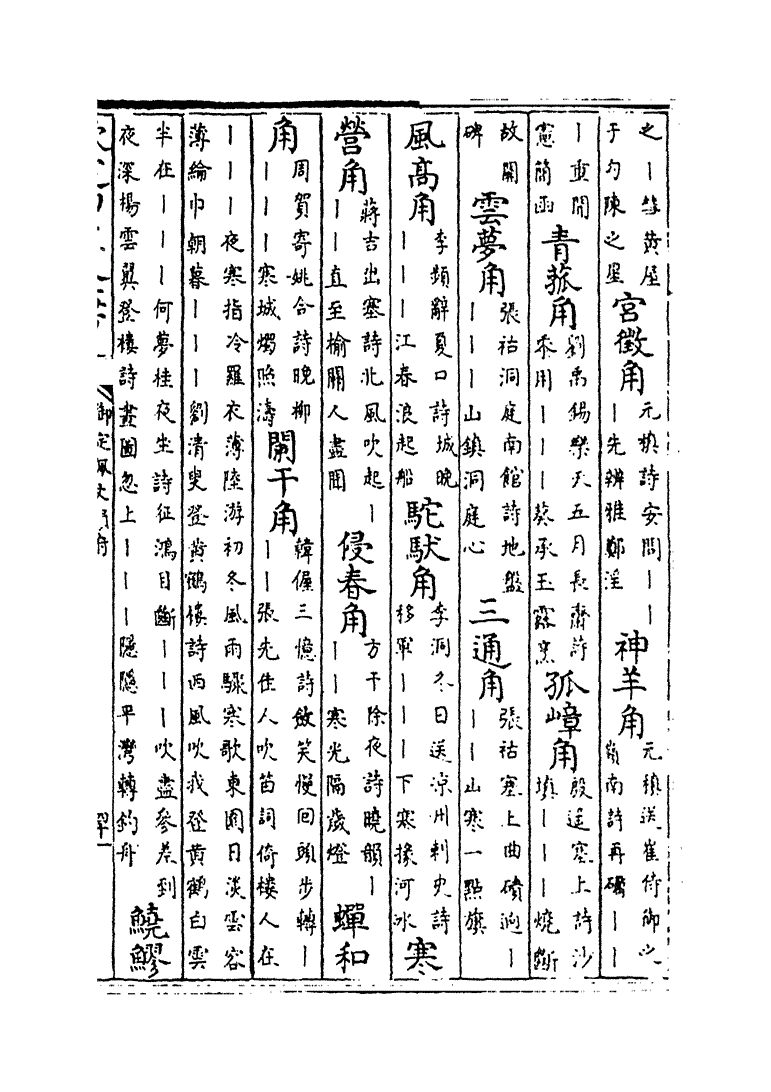 之｜ 黃屋于勾陳之星 宮徵角 元稹詩安問｜｜｜先辨雅鄭淫 神羊角 元稹送崔侍御之嶺南詩再礪｜｜
｜重開 憲簡函 青菰角 劉禹錫樂天五月長齋詩黍用｜｜｜葵承玉露烹 孤嶂角 殷遥塞上詩沙填｜｜｜燒斷
故關碑 雲夢角 張祜洞庭南館詩地盤｜｜｜山鎮洞庭心 三通角 張祜塞上曲磧迥｜｜｜山寒一點旗
風高角 李頻辭夏口詩城晚｜｜｜江春浪起船 駝馱角 李洞冬日送涼州刺史詩移軍｜｜｜下寨掾河冰 寒
營角 蔣吉出塞詩北風吹起｜｜｜直至榆關人盡聞 侵春角 方干除夜詩曉韻｜｜｜寒光隔歲燈 蟬和
角 周賀寄姚合詩晚柳｜｜｜寒城燭照濤 闌干角 韓偓三憶詩斂笑慢回頭步轉｜｜｜張先佳人吹笛詞倚樓人在
｜｜｜夜寒指冷羅衣薄陸游初冬風雨驟寒歌東園日淡雲容薄綸巾朝暮｜｜｜劉清叟登黃鶴樓詩西風吹我登黃鶴白雲
半在｜｜｜何夢桂夜坐詩征鴻目斷｜｜｜吹盡參差到夜深楊雲翼登樓詩畫圖忽上｜｜｜隱隱平灣轉釣舟 鐃鏐
御定佩文韻府